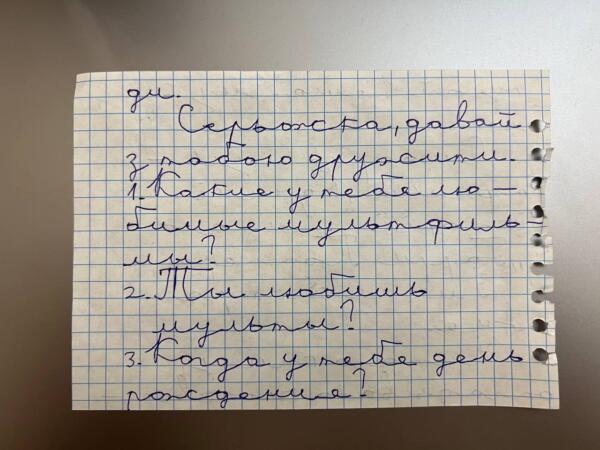 ди.
Серьожка, давай
з тобою дружити.
1. Какие у тебя лю-
бимые мультфиль-
мы?
2. Ты любишь
мульты?
3. Когда у тебе день
рождения?